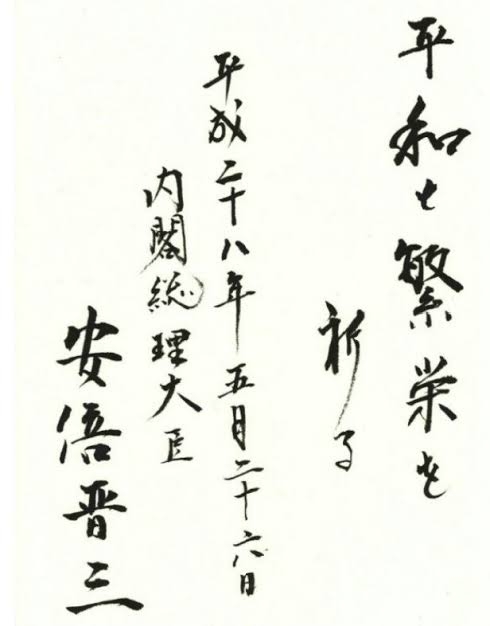 平和と繁栄を
祈る
平成二十八年五月二十六日
内閣総理大臣
安倍晋三